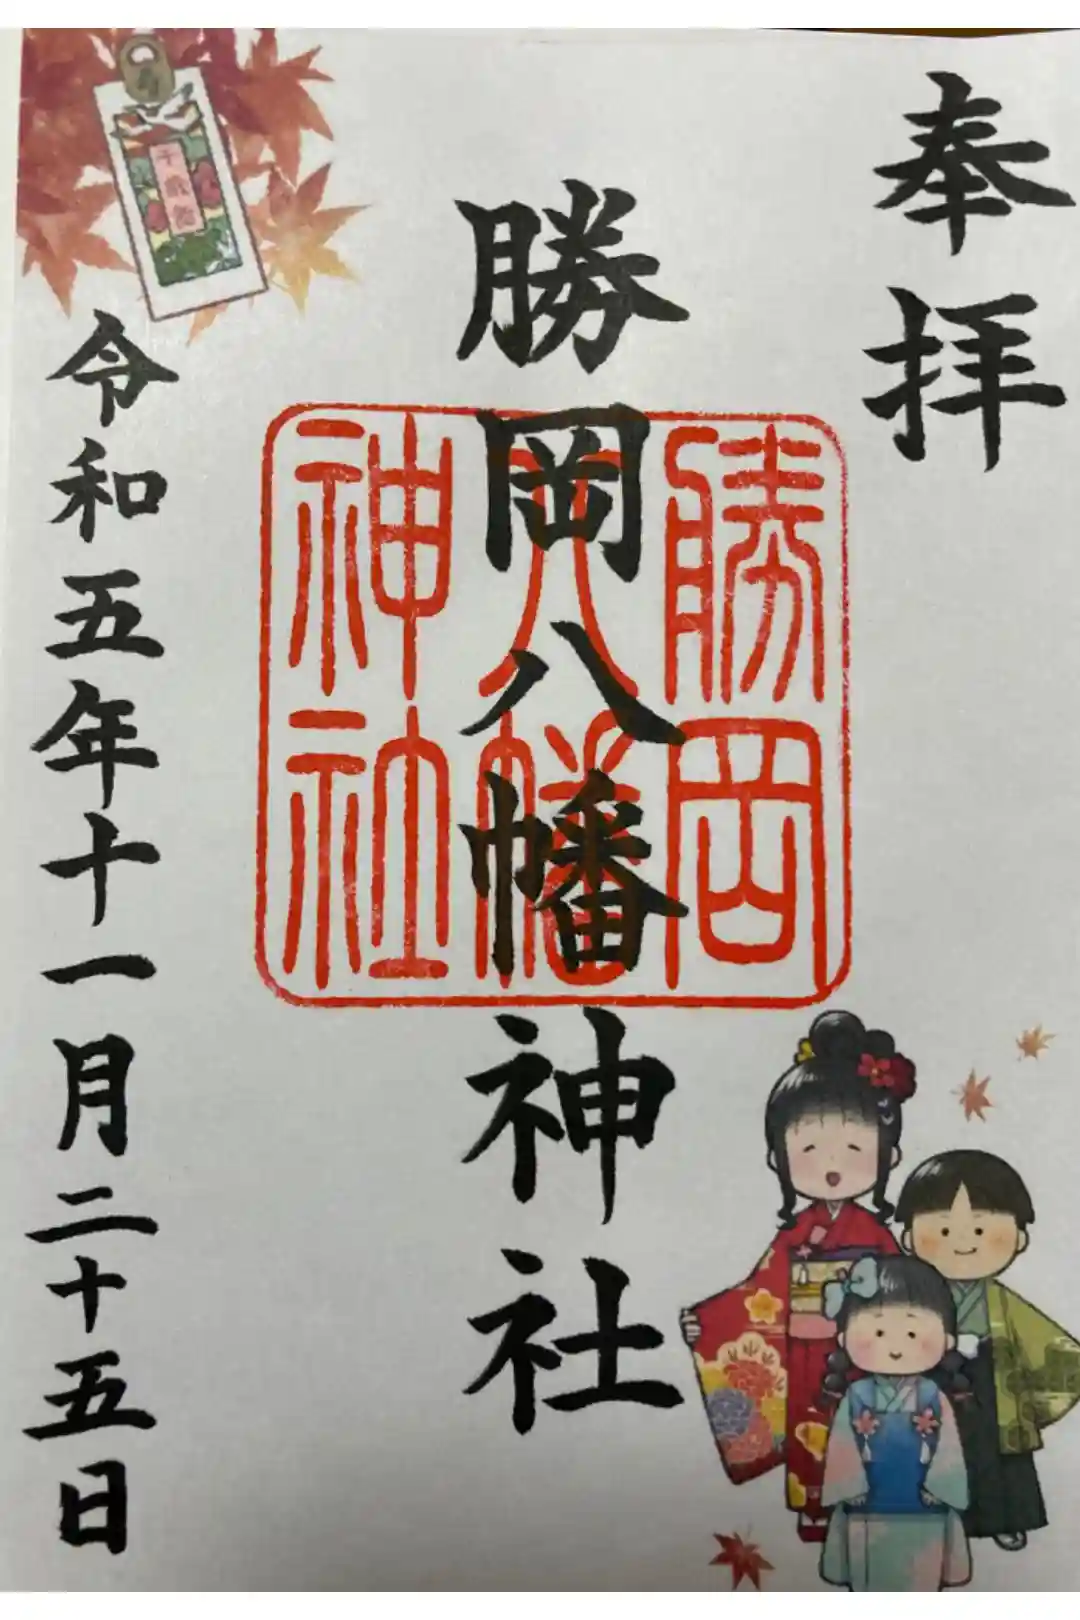 奉拝
勝岡八幡神社
勝岡
八幡
神社
令和五年十一月二十五日
千歳飴